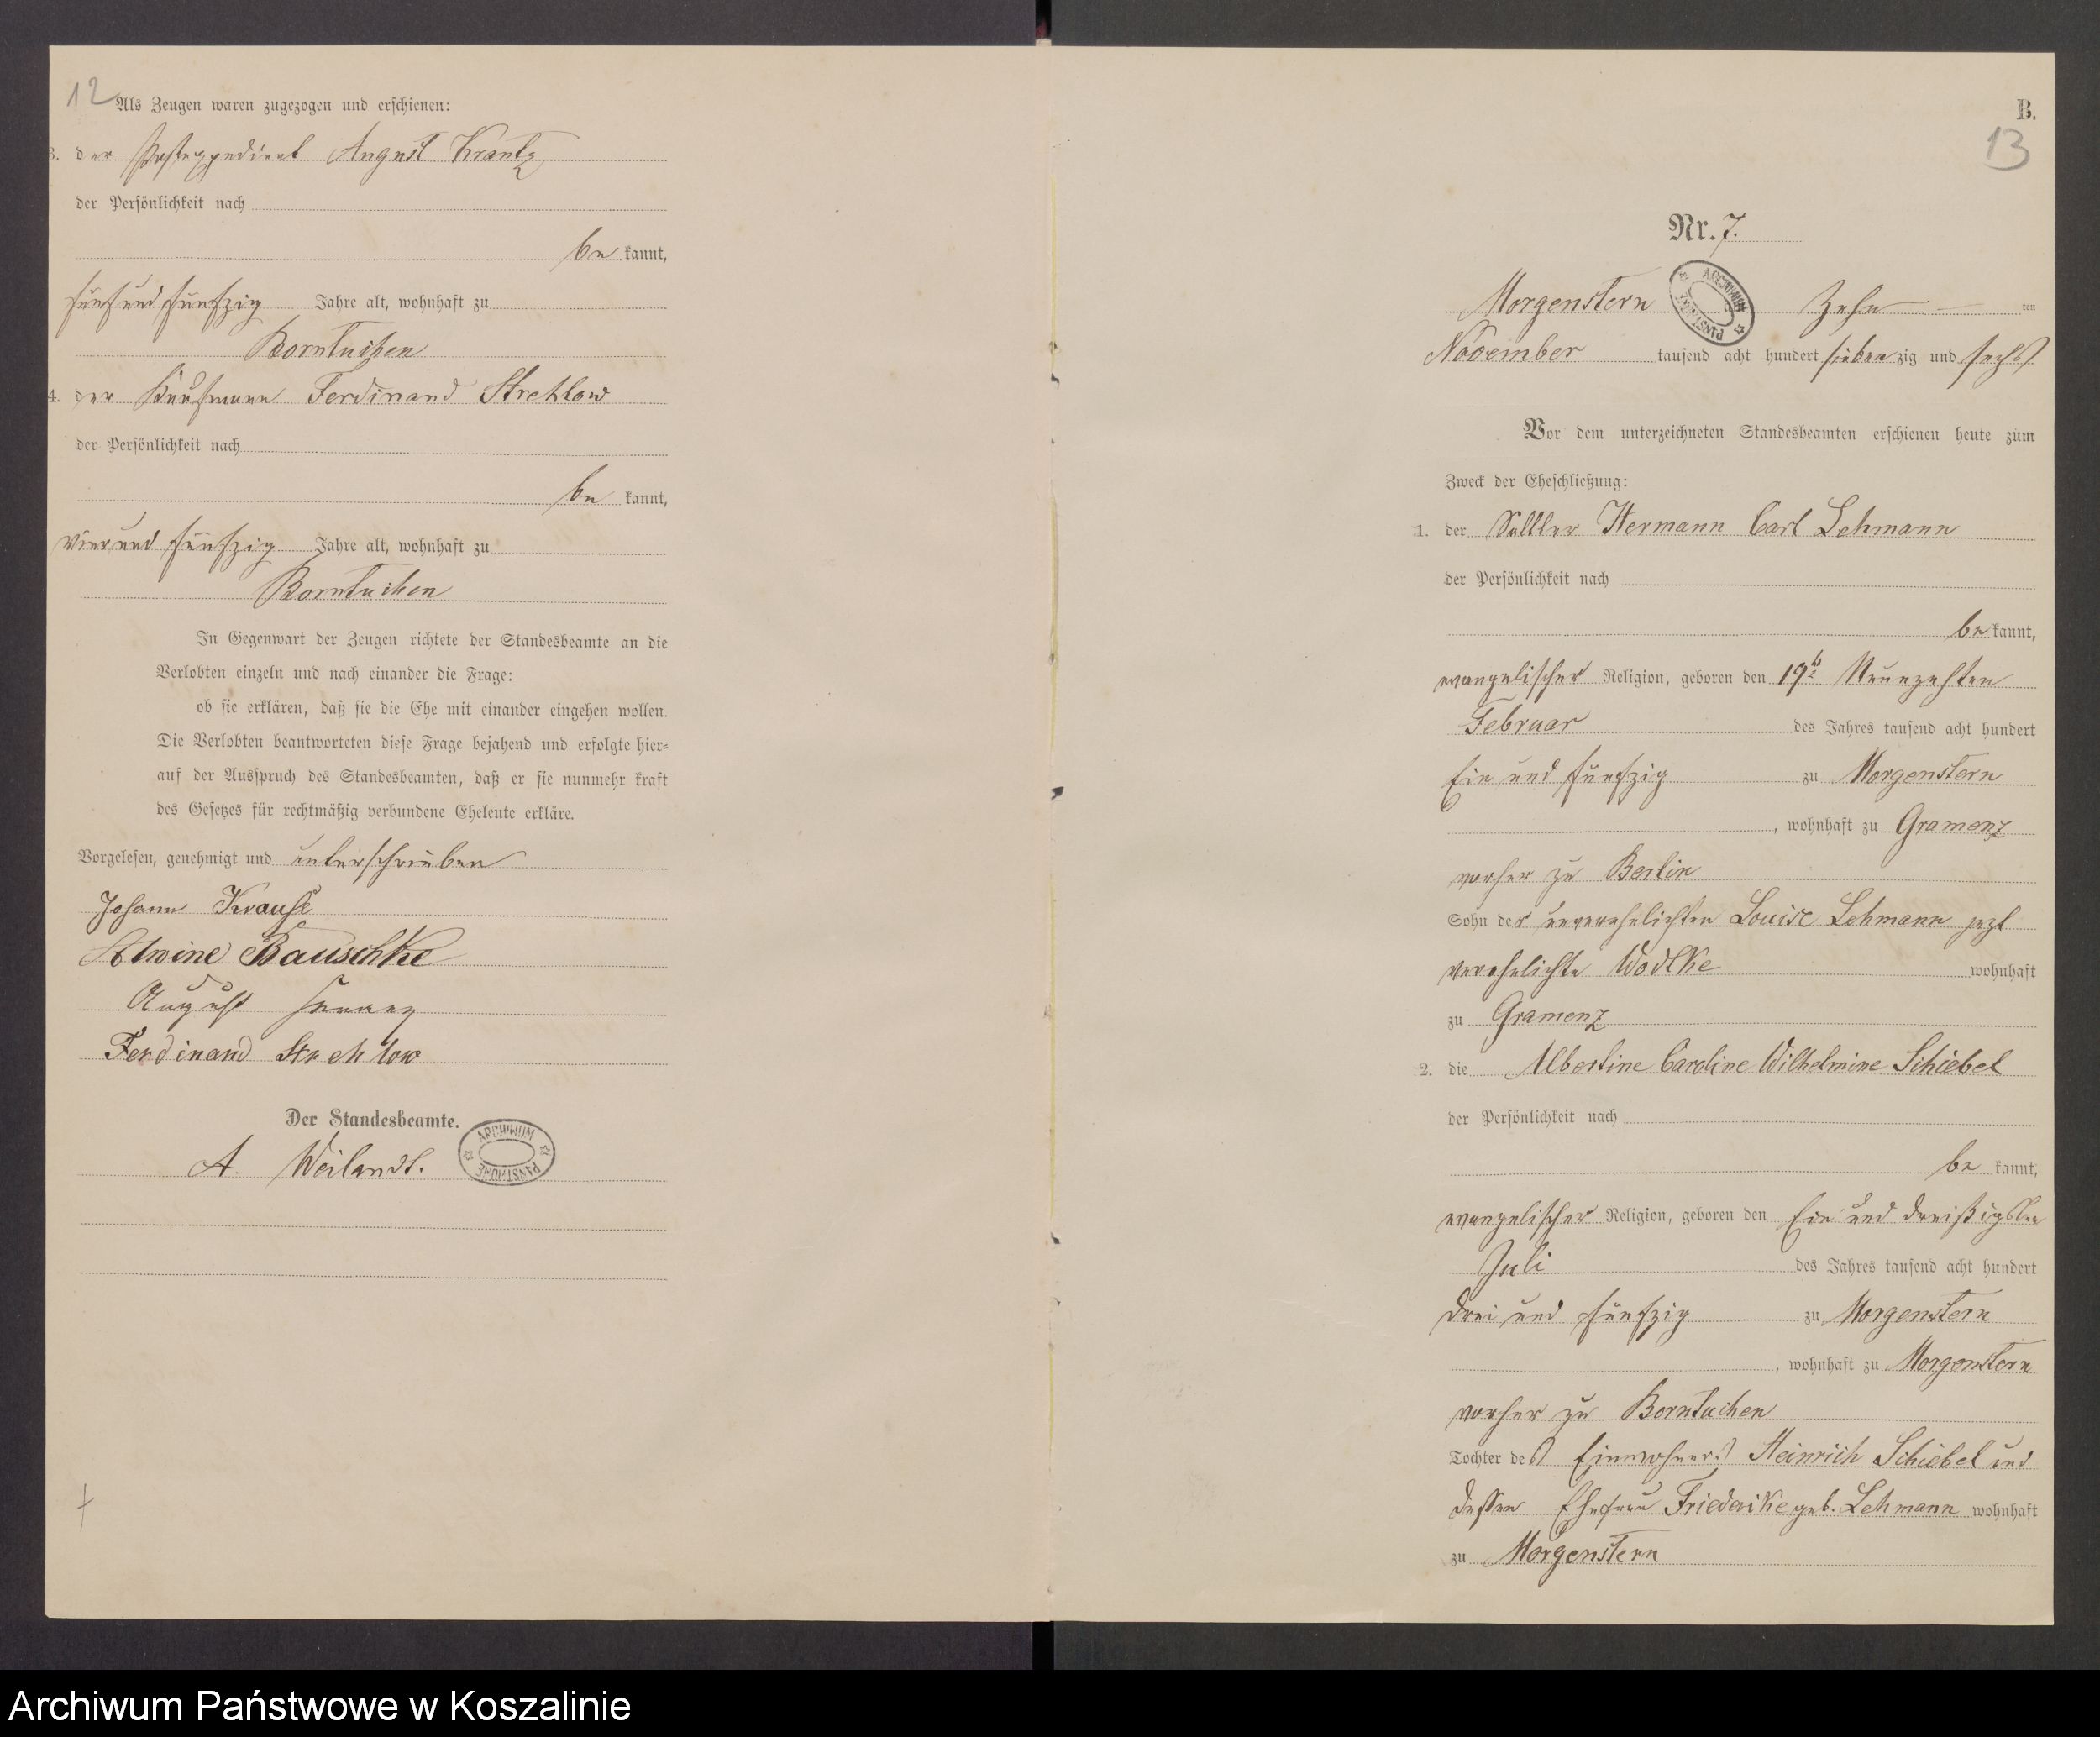 12
Als Zeugen waren zugezogen und erschienen:
3. der Postexpedient August Krantz
der Persönlichkeit nach
be kannt,
fünfundfünfzig Jahre alt, wohnhaft zu
Borntuchen
4. der Kaufmann Ferdinand Strehlow
der Persönlichkeit nach
be kannt,
vierundfünfzig Jahre alt, wohnhaft zu
Borntuchen
In Gegenwart der Zeugen richtete der Standesbeamte an die
Verlobten einzeln und nach einander die Frage:
ob sie erklären, daß sie die Ehe mit einander eingehen wollen.
Die Verlobten beantworteten diese Frage bejahend und erfolgte hier-
auf der Ausspruch des Standesbeamten, daß er sie nunmehr kraft
des Gesetzes für rechtmäßig verbundene Eheleute erkläre.
Vorgelesen, genehmigt und unterschrieben
Johann Krause
Alwine Bauschke
August
Ferdinand Strehlow
Der Standesbeamte.
A. Weilandt.
ARCHIWUM PAŃSTWOWE
B.
13
Nr. 7.
Morgenstern Zehn ten
ARCHIWUM PAŃSTWOWE
November tausend acht hundert sieben zig und sechs
Vor dem unterzeichneten Standesbeamten erschienen heute zum
Zweck der Eheschließung:
1. der Sattler Hermann Carl Lehmann
der Persönlichkeit nach
be kannt,
evangelischer Religion, geboren den 19t Neunzehnten
Februar des Jahres tausend acht hundert
Ein und fünfzig zu Morgenstern
, wohnhaft zu Gramenz
vorher zu Berlin
Sohn der unverehelichten Louise Lehmann jezt
verehelichte Wodtke wohnhaft
zu Gramenz
2. die Albertine Caroline Wilhelmine Schiebel
der Persönlichkeit nach
be kannt,
evangelischer Religion, geboren den Ein und dreißigsten
Juli des Jahres tausend acht hundert
drei und fünfzig zu Morgenstern
, wohnhaft zu Morgenstern
vorher zu Borntuchen
Tochter des Einwohners Heinrich Schiebel und
dessen Ehefrau Friederike geb. Lehmann wohnhaft
zu Morgenstern
Archiwum Państwowe w Koszalinie